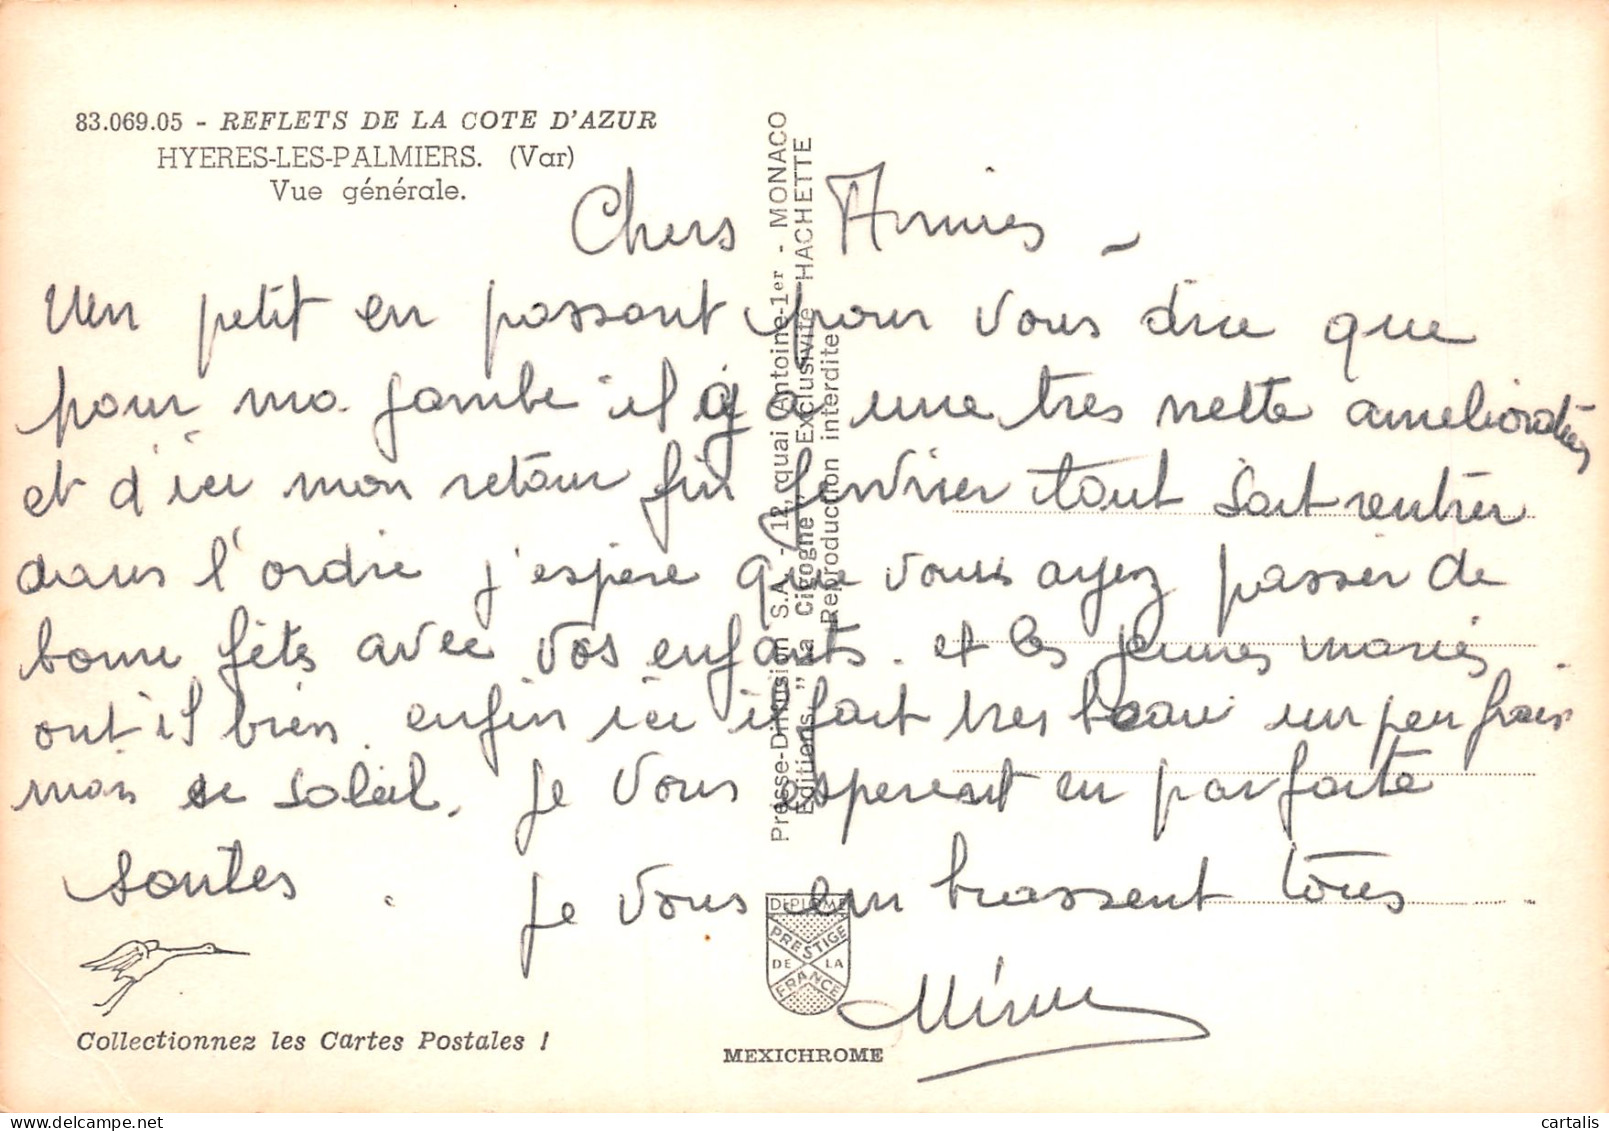 83.069.05 - REFLETS DE LA COTE D'AZUR
HYERES-LES-PALMIERS. (Var)
Vue générale.
Chers Amies -
Un petit en passant pour vous dire que
pour ma jambe il y a une tres nette amelioration
et d'ici mon retour fin fevrier tout soit rentrer
dans l'ordre j'espere que vous ayez passer de
bonne fêtes avec vos enfants. et les jeunes mariés
ont il bien. enfin ici il fait tres beau un peu frais
mais se soleil. je vous esperent en parfaite
santes.
je vous em brassent tous
Mimi
Presse-Diffusion S.A. - 12, quai Antoine-1er - MONACO
Editions "La Cigogne", Exclusivité HACHETTE
Reproduction interdite
DIPLOME
PRESTIGE
DE LA
FRANCE
Collectionnez les Cartes Postales !
MEXICHROME
cartalis